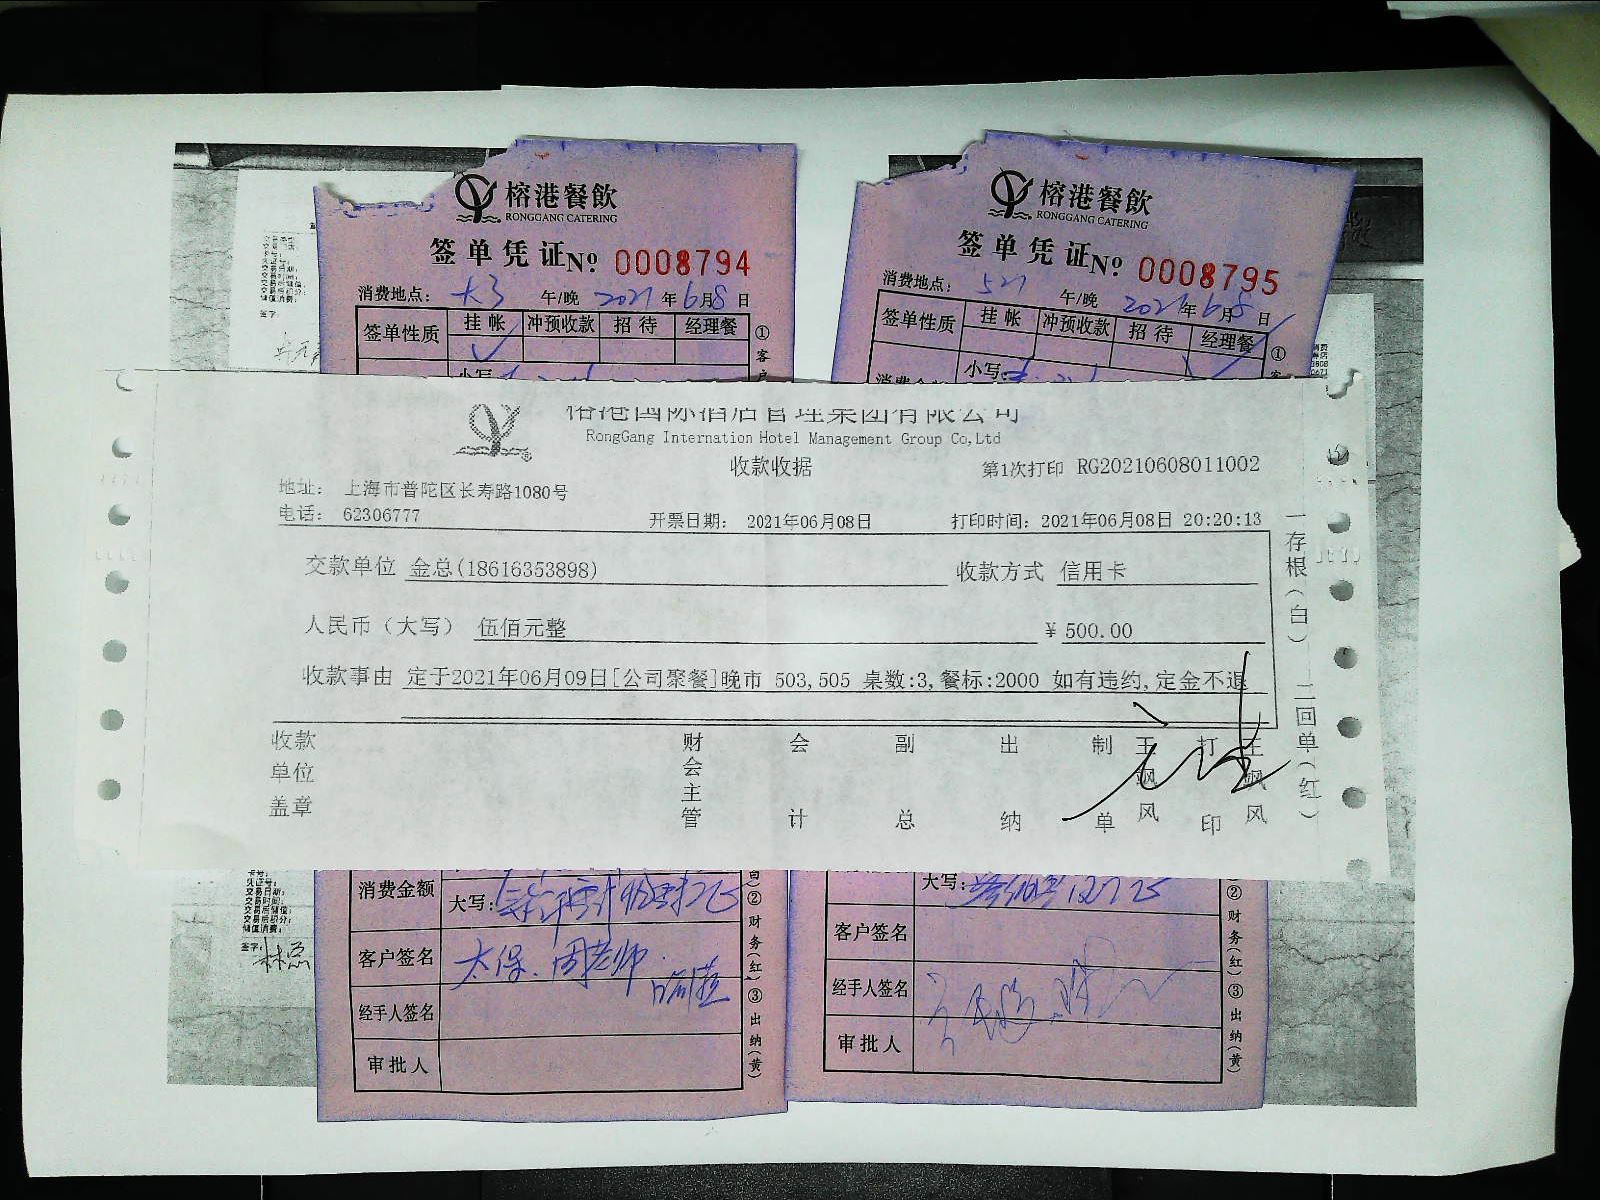 榕港餐飲
RONGGANG CATERING
签单凭证№ 0008794
消费地点： 大3 午/晚 2021年6月8日
签单性质 挂帐 冲预收款 招待 经理餐
①客户
榕港餐飲
RONGGANG CATERING
签单凭证№ 0008795
消费地点： 521 午/晚 2021年6月8日
签单性质 挂帐 冲预收款 招待 经理餐
①客
小写:
榕港国际酒店管理集团有限公司
RongGang Internation Hotel Management Group Co,Ltd
收款收据
第1次打印 RG20210608011002
地址： 上海市普陀区长寿路1080号
电话： 62306777
开票日期： 2021年06月08日
打印时间： 2021年06月08日 20:20:13
交款单位 金总(18616353898)
收款方式 信用卡
人民币（大写） 伍佰元整
¥ 500.00
收款事由 定于2021年06月09日[公司聚餐]晚市 503,505 桌数:3,餐标:2000 如有违约,定金不退
一存根（白） 二回单（红）
收款单位盖章
财会主管
会计
副总
出纳
制单 王飒风
打印 王飒风
卡号:
凭证号:
交易日期:
交易时间:
交易后储值:
交易后积分:
储值消费:
签字:
林总
消费金额 大写:
客户签名 太保、周老师
经手人签名
审批人
②财务(红) ③出纳(黄)
大写:
客户签名
经手人签名
审批人
②财务(红) ③出纳(黄)